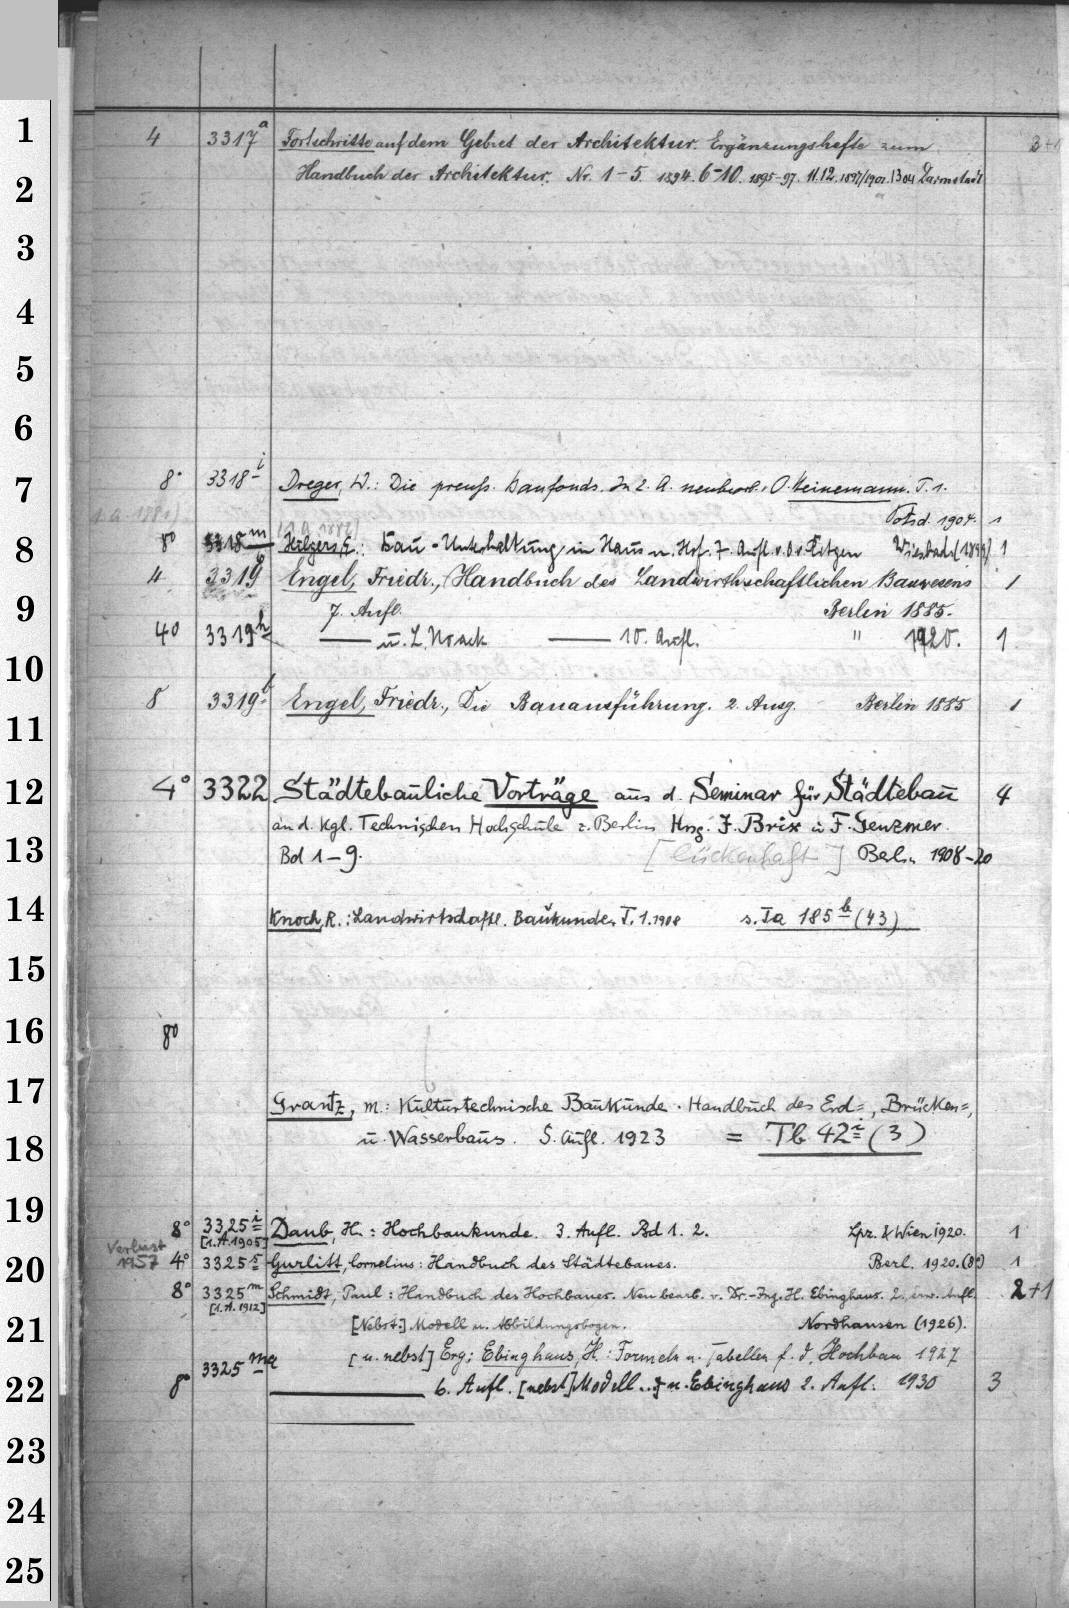 1
4 3317a Fortschritte auf dem Gebiet der Architektur. Ergänzungshefte zum
2 Handbuch der Architektur. Nr. 1-5. 1894. 6-10. 1895-97. 11.12. 1897/1901. 13 04 Darmstadt
3
4
5
6
7 8° 3318i Dreger, W.: Die preuss. Baufonds. In 2. A. neubearb. O. Heinemann. T. 1.
Potsd. 1904. 1
8 8° 3318m Hilgers, E.: Bau-Unterhaltung in Haus u. Hof. 7. Aufl. v. Wiesbad. (1899) 1
4 3319 Engel, Friedr., Handbuch des Landwirthschaftlichen Bauwesens 1
9 7. Aufl. Berlin 1885.
4° 3319h —— u. L. Noack —— 10. Aufl. " 1920. 1
10
8 3319l Engel, Friedr., Die Bauausführung. 2. Ausg. Berlin 1885 1
11
12 4° 3322 Städtebauliche Vorträge aus d. Seminar für Städtebau 4
an d. Kgl. Technischen Hochschule z. Berlin Hrsg. J. Brix u F. Genzmer.
13 Bd 1-9. [lückenhaft] Berlin 1908-20
14 Knoch, R.: Landwirtschaftl. Baukunde. T. 1. 1908 s. Ia 185b (43)
15
16 8°
17 Grantz, M.: Kulturtechnische Baukunde. Handbuch des Erd=, Brücken=,
18 u. Wasserbaus. 5. Aufl. 1923 = Tb 42i (3)
19
8° 3325i Daub, H.: Hochbaukunde. 3. Aufl. Bd 1. 2. Lpz. & Wien 1920. 1
[1. A. 1905]
Verlust 1957
20 4° 3325 Gurlitt, Cornelius: Handbuch des Städtebaues. Berl. 1920. (8°) 1
8° 3325m Schmidt, Paul: Handbuch des Hochbaues. Neu bearb. v. Dr.-Ing. H. Ebinghaus. 2. erw. Aufl. 2+1
[1. A. 1912]
21 [Nebst:] Modell u. Abbildungsbogen. Nordhausen (1926).
[u. nebst] Erg: Ebinghaus, H.: Formeln u. Tabellen f. d. Hochbau 1927
22 8° 3325ma —— 6. Aufl. [nebst] Modell.. u. Ebinghaus 2. Aufl. 1930 3
23
24
25